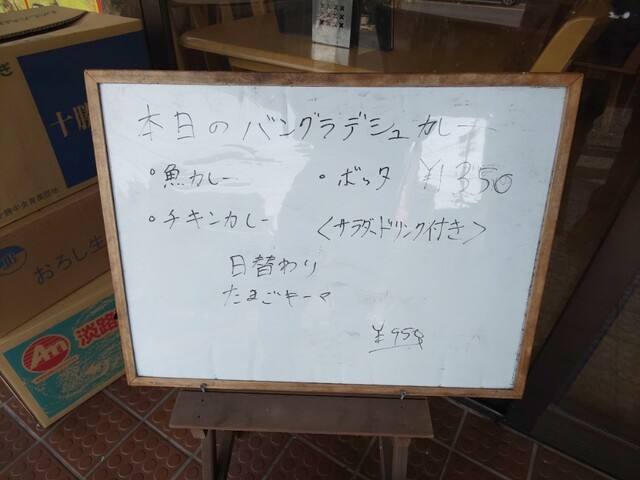 本日のバングラデシュカレー
・魚カレー ・ボッタ ¥1350
・チキンカレー <サラダ、ドリンク付き>
日替わり
たまごキーマ
¥950
十勝
おろし生
Am 淡路